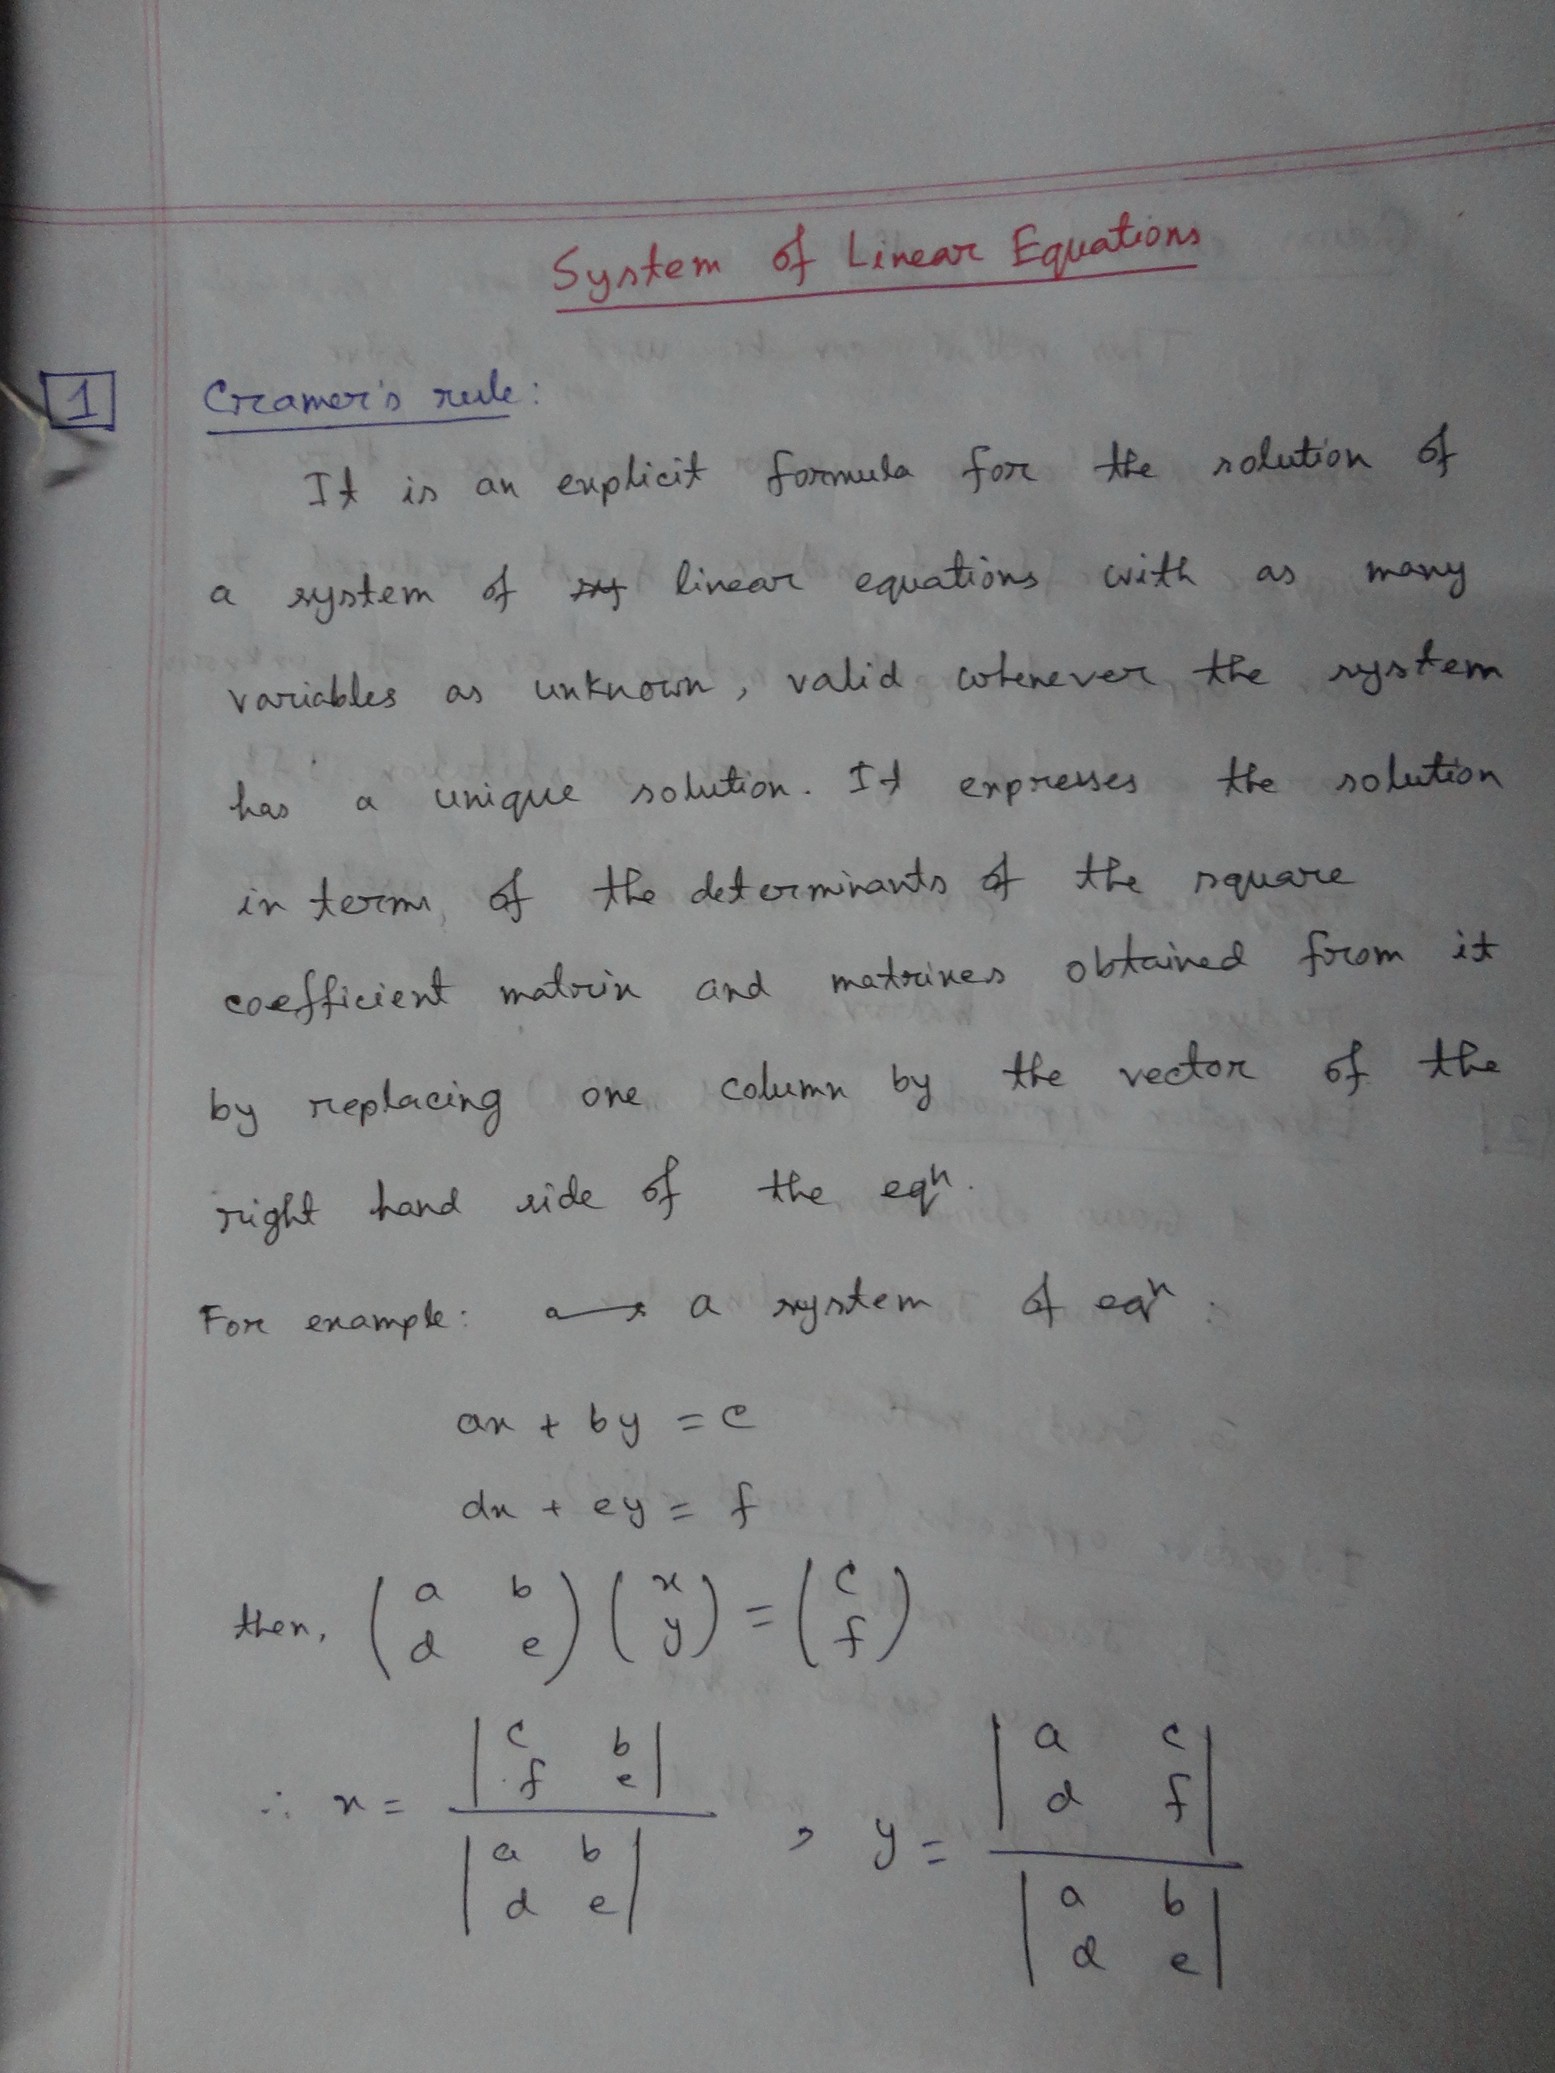 System of Linear Equations
1 Cramer's rule:
It is an explicit formula for the solution of
a system of linear equations with as many
variables as unknown, valid whenever the system
has a unique solution. It expresses the solution
in terms of the determinants of the square
coefficient matrix and matrixes obtained from it
by replacing one column by the vector of the
right hand side of the eqⁿ.
For example: a system of eqⁿ :
ax + by = c
dx + ey = f
then, (a b) (x) = (c)
(d e) (y) (f)
|c b| |a c|
|f e| |d f|
∴ x = , y =
|a b| |a b|
|d e| |d e|